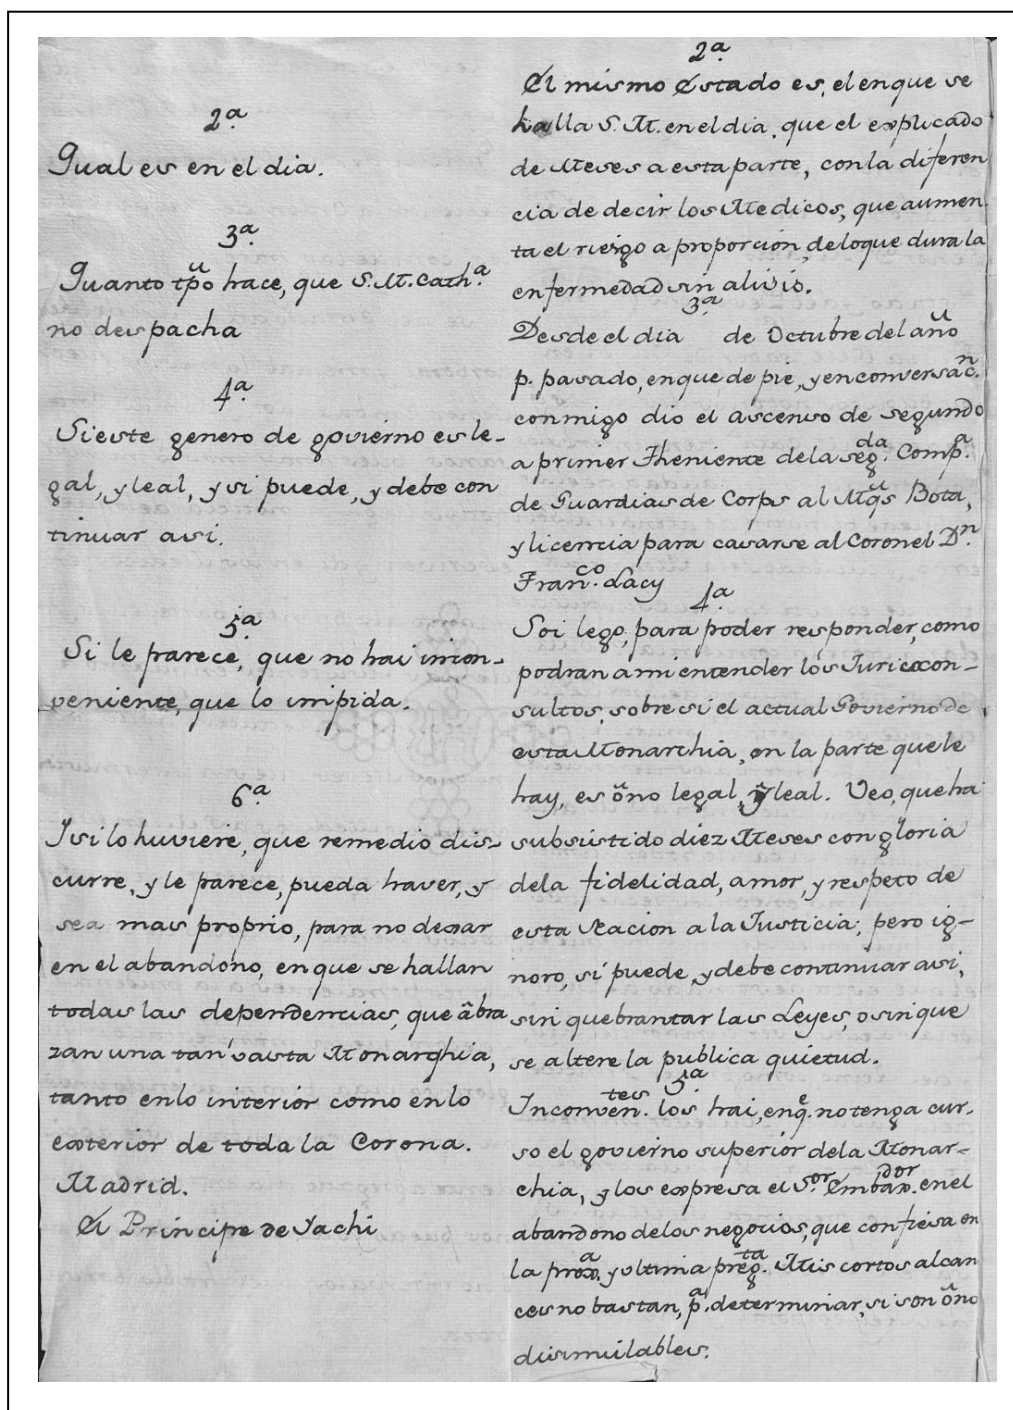 2ª
Qual es en el dia.
3ª
Quanto tp̃o hace, que S. M. Cathª
no despacha
4ª
Si este genero de govierno es le-
gal, y leal, y si puede, y debe con
tinuar asi.
5ª
Si le parece, que no hai incon-
veniente, que lo impida.
6ª
Y si lo huviere, que remedio dis-
curre, y le parece, pueda haver, y
sea mas proprio, para no dexar
en el abandono, en que se hallan
todas las dependencias, que âbra
zan una tan vasta Monarqhia,
tanto en lo interior como en lo
exterior de toda la Corona.
Madrid.
El Principe de Yachi
2ª
El mismo Estado es, el enque se
halla S. M. en el dia, que el explicado
de Meses a esta parte, con la diferen
cia de decir los Medicos, que aumen
ta el riesgo a proporcion, de loque dura la
enfermedad sin alivio.
3ª
Desde el dia de Octubre del año
p. pasado, enque de pie, y en conversac.n
conmigo dio el ascenso de segundo
a primer Theniente de la seg.da Comp.a
de Guardias de Corps al Mq̃s Bota,
y licencia para casarse al Coronel D.n
Fran.co Lacy
4ª
Soi lego, para poder responder, como
podran a mi entender los Juriscon-
sultos, sobre si el actual Govierno de
esta Monarchia, en la parte que le
hay, es ôno legal, y leal. Veo, que ha
subsistido diez Meses con gloria
dela fidelidad, amor, y respeto de
esta Nacion a la Justicia; pero ig-
noro, si puede, y debe continuar asi,
sin quebrantar las Leyes, o sin que
se altere la publica quietud.
5ª
Inconven.tes los hai, en q.e no tenga cur-
so el govierno superior dela Monar-
chia, y los expresa el S.or Embax.dor en el
abandono delos negocios, que confiesa en
la prox.a y ultima preg.ta Mis cortos alcan
ces no bastan, p.a determinar, si son ôno
disimulables.